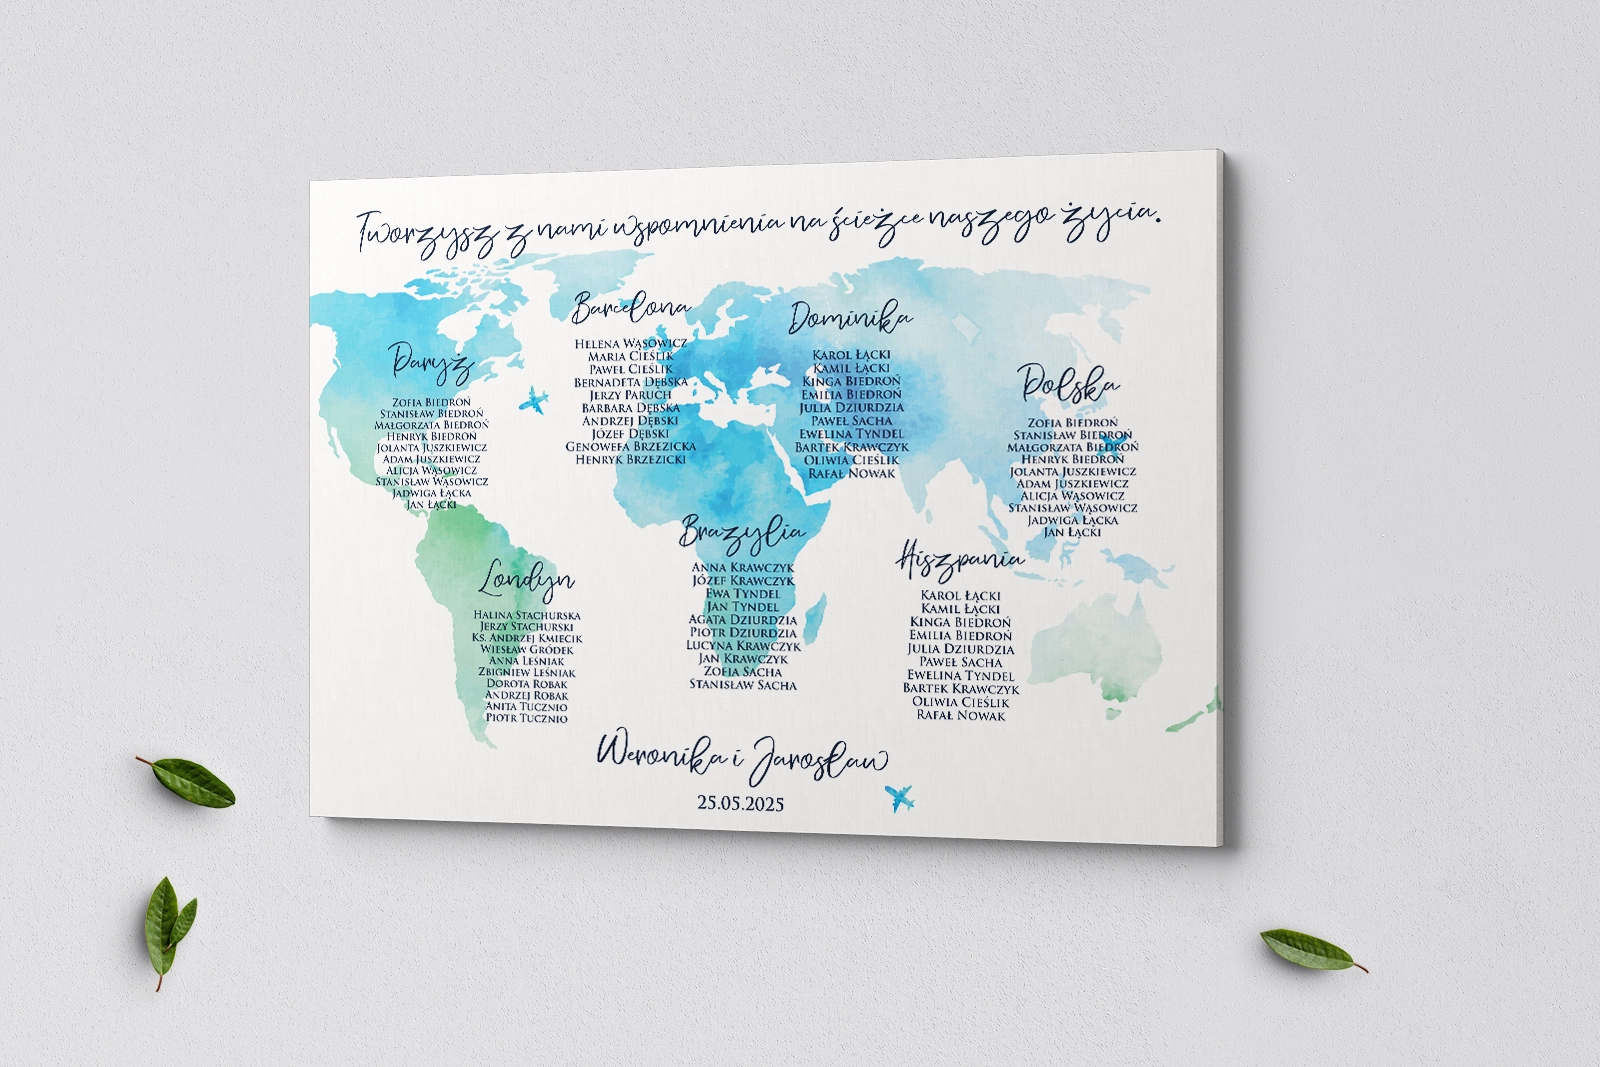 Tworzysz z nami wspomnienia na ścieżce naszego życia.
Paryż
Zofia Biedroń
Stanisław Biedroń
Małgorzata Biedroń
Henryk Biedroń
Jolanta Juszkiewicz
Adam Juszkiewicz
Alicja Wąsowicz
Stanisław Wąsowicz
Jadwiga Łącka
Jan Łącki
Barcelona
Helena Wąsowicz
Maria Cieślik
Paweł Cieślik
Bernadeta Dębska
Jerzy Paruch
Barbara Dębska
Andrzej Dębski
Józef Dębski
Genowefa Brzezicka
Henryk Brzezicki
Dominika
Karol Łącki
Kamil Łącki
Kinga Biedroń
Emilia Biedroń
Julia Dziurdzia
Paweł Sacha
Ewelina Tyndel
Bartek Krawczyk
Oliwia Cieślik
Rafał Nowak
Polska
Zofia Biedroń
Stanisław Biedroń
Małgorzata Biedroń
Henryk Biedroń
Jolanta Juszkiewicz
Adam Juszkiewicz
Alicja Wąsowicz
Stanisław Wąsowicz
Jadwiga Łącka
Jan Łącki
Londyn
Halina Stachurska
Jerzy Stachurski
Ks. Andrzej Kmiecik
Wiesław Gródek
Anna Leśniak
Zbigniew Leśniak
Dorota Robak
Andrzej Robak
Anita Tucznio
Piotr Tucznio
Brazylia
Anna Krawczyk
Józef Krawczyk
Ewa Tyndel
Jan Tyndel
Agata Dziurdzia
Piotr Dziurdzia
Lucyna Krawczyk
Jan Krawczyk
Zofia Sacha
Stanisław Sacha
Hiszpania
Karol Łącki
Kamil Łącki
Kinga Biedroń
Emilia Biedroń
Julia Dziurdzia
Paweł Sacha
Ewelina Tyndel
Bartek Krawczyk
Oliwia Cieślik
Rafał Nowak
Weronika i Jarosław
25.05.2025